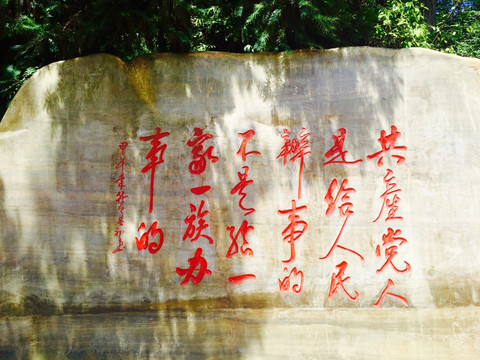 共產党人
是给人民
辦事的
不是给一
家一族办
事的
甲午